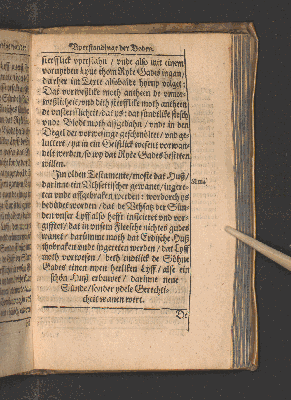 Vperstandinge der Doden.
sterfflick vpersthan / vnde also mit einem
vornyeden lyue thom Ryke Gades ingan /
daruher im Texte alsobalde hyrup volget:
Dat vorweßlike moth antheen de vnuor-
weßlicheit / vnd dith sterfflike moth antheen
de vnsterfflicheit / dat ys: dat sündtlike fleesch
vnde Blodt moth affgedahn / vnde in den
Degel der vorwesinge geschmöltet / vnd ge-
luttert / ya in ein Geistlick wesent vorwan-
delt werden / so wy dat Ryke Gades besitten
willen.
Im olden Testamente / moste dat Huß /
darinne ein Uthsettischer gewanet / ingere-
ten vnde affgebraken werden: wordorch ys
bedüdet worden / dat de Uthsatz der Sün-
den vnser Lyff also hefft inficieret vnd vor-
gifftet / dat in vnsem Fleesche nichtes gudes
wanet / darümme moth dat Erdische Huß
thobraken vnde ingereten werden / dat Lyff
moth vorwesen / beth endtlick de Söhne
Gades einen nyen herliken Lyff / alse ein
schön Huß erbuwet / darinne nene
Sünde / sonder ydele Gerechti-
cheit wanen wert.
De